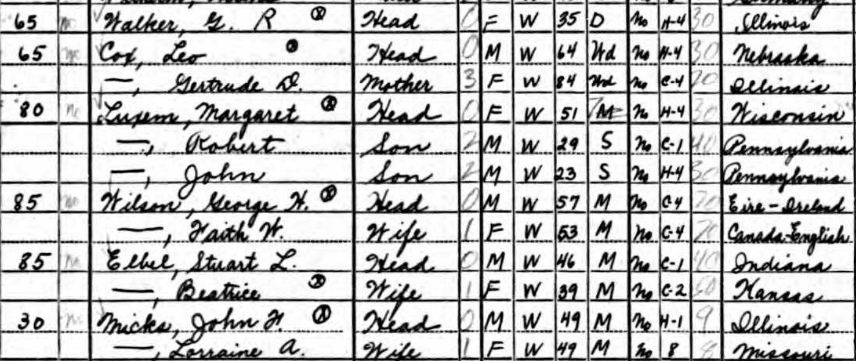 65 No Walker, G. R ⓧ Head 0 F W 35 D No H-4 30 Illinois
65 No Cox, Leo ⓧ Head 0 M W 64 Wd No H-4 30 Nebraska
—, Gertrude D. Mother 3 F W 84 Wd No C-4 20 Illinois
80 No Luxem, Margaret ⓧ Head 0 F W 51 M No H-4 30 Wisconsin
—, Robert Son 2 M W 29 S No C-1 40 Pennsylvania
—, John Son 2 M W 23 S No H-4 30 Pennsylvania
85 No Wilson, George H. ⓧ Head 0 M W 57 M No C-4 20 Eire-Ireland
—, Faith W. Wife 1 F W 53 M No C-4 20 Canada-English
85 No Elbel, Stuart L. Head 0 M W 46 M No C-1 40 Indiana
—, Beatrice ⓧ Wife 1 F W 39 M No C-2 50 Kansas
30 No Micks, John H ⓧ Head 0 M W 49 M No H-1 9 Illinois
—, Lorraine A. Wife 1 F W 49 M No 8 Missouri